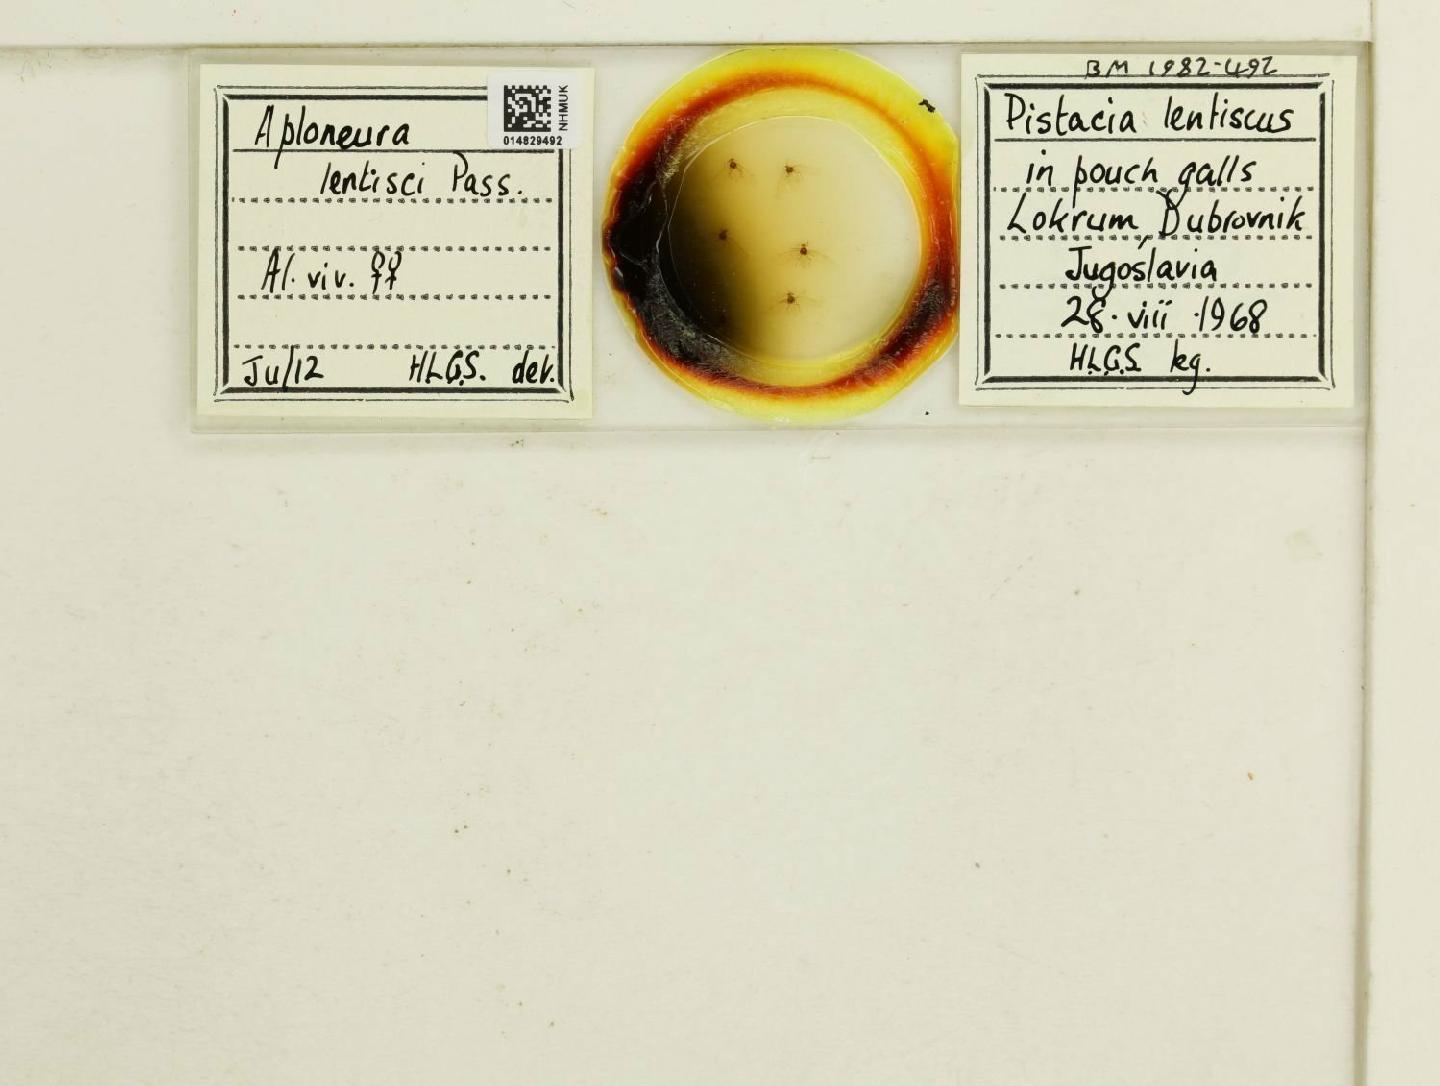 Aploneura
lentisci Pass.
Al. viv. ♀♀
Ju/12 H.L.G.S. det.
NHMUK
014829492
BM 1982-492
Pistacia lentiscus
in pouch galls
Lokrum, Dubrovnik
Jugoslavia
28. viii .1968
H.L.G.S. leg.